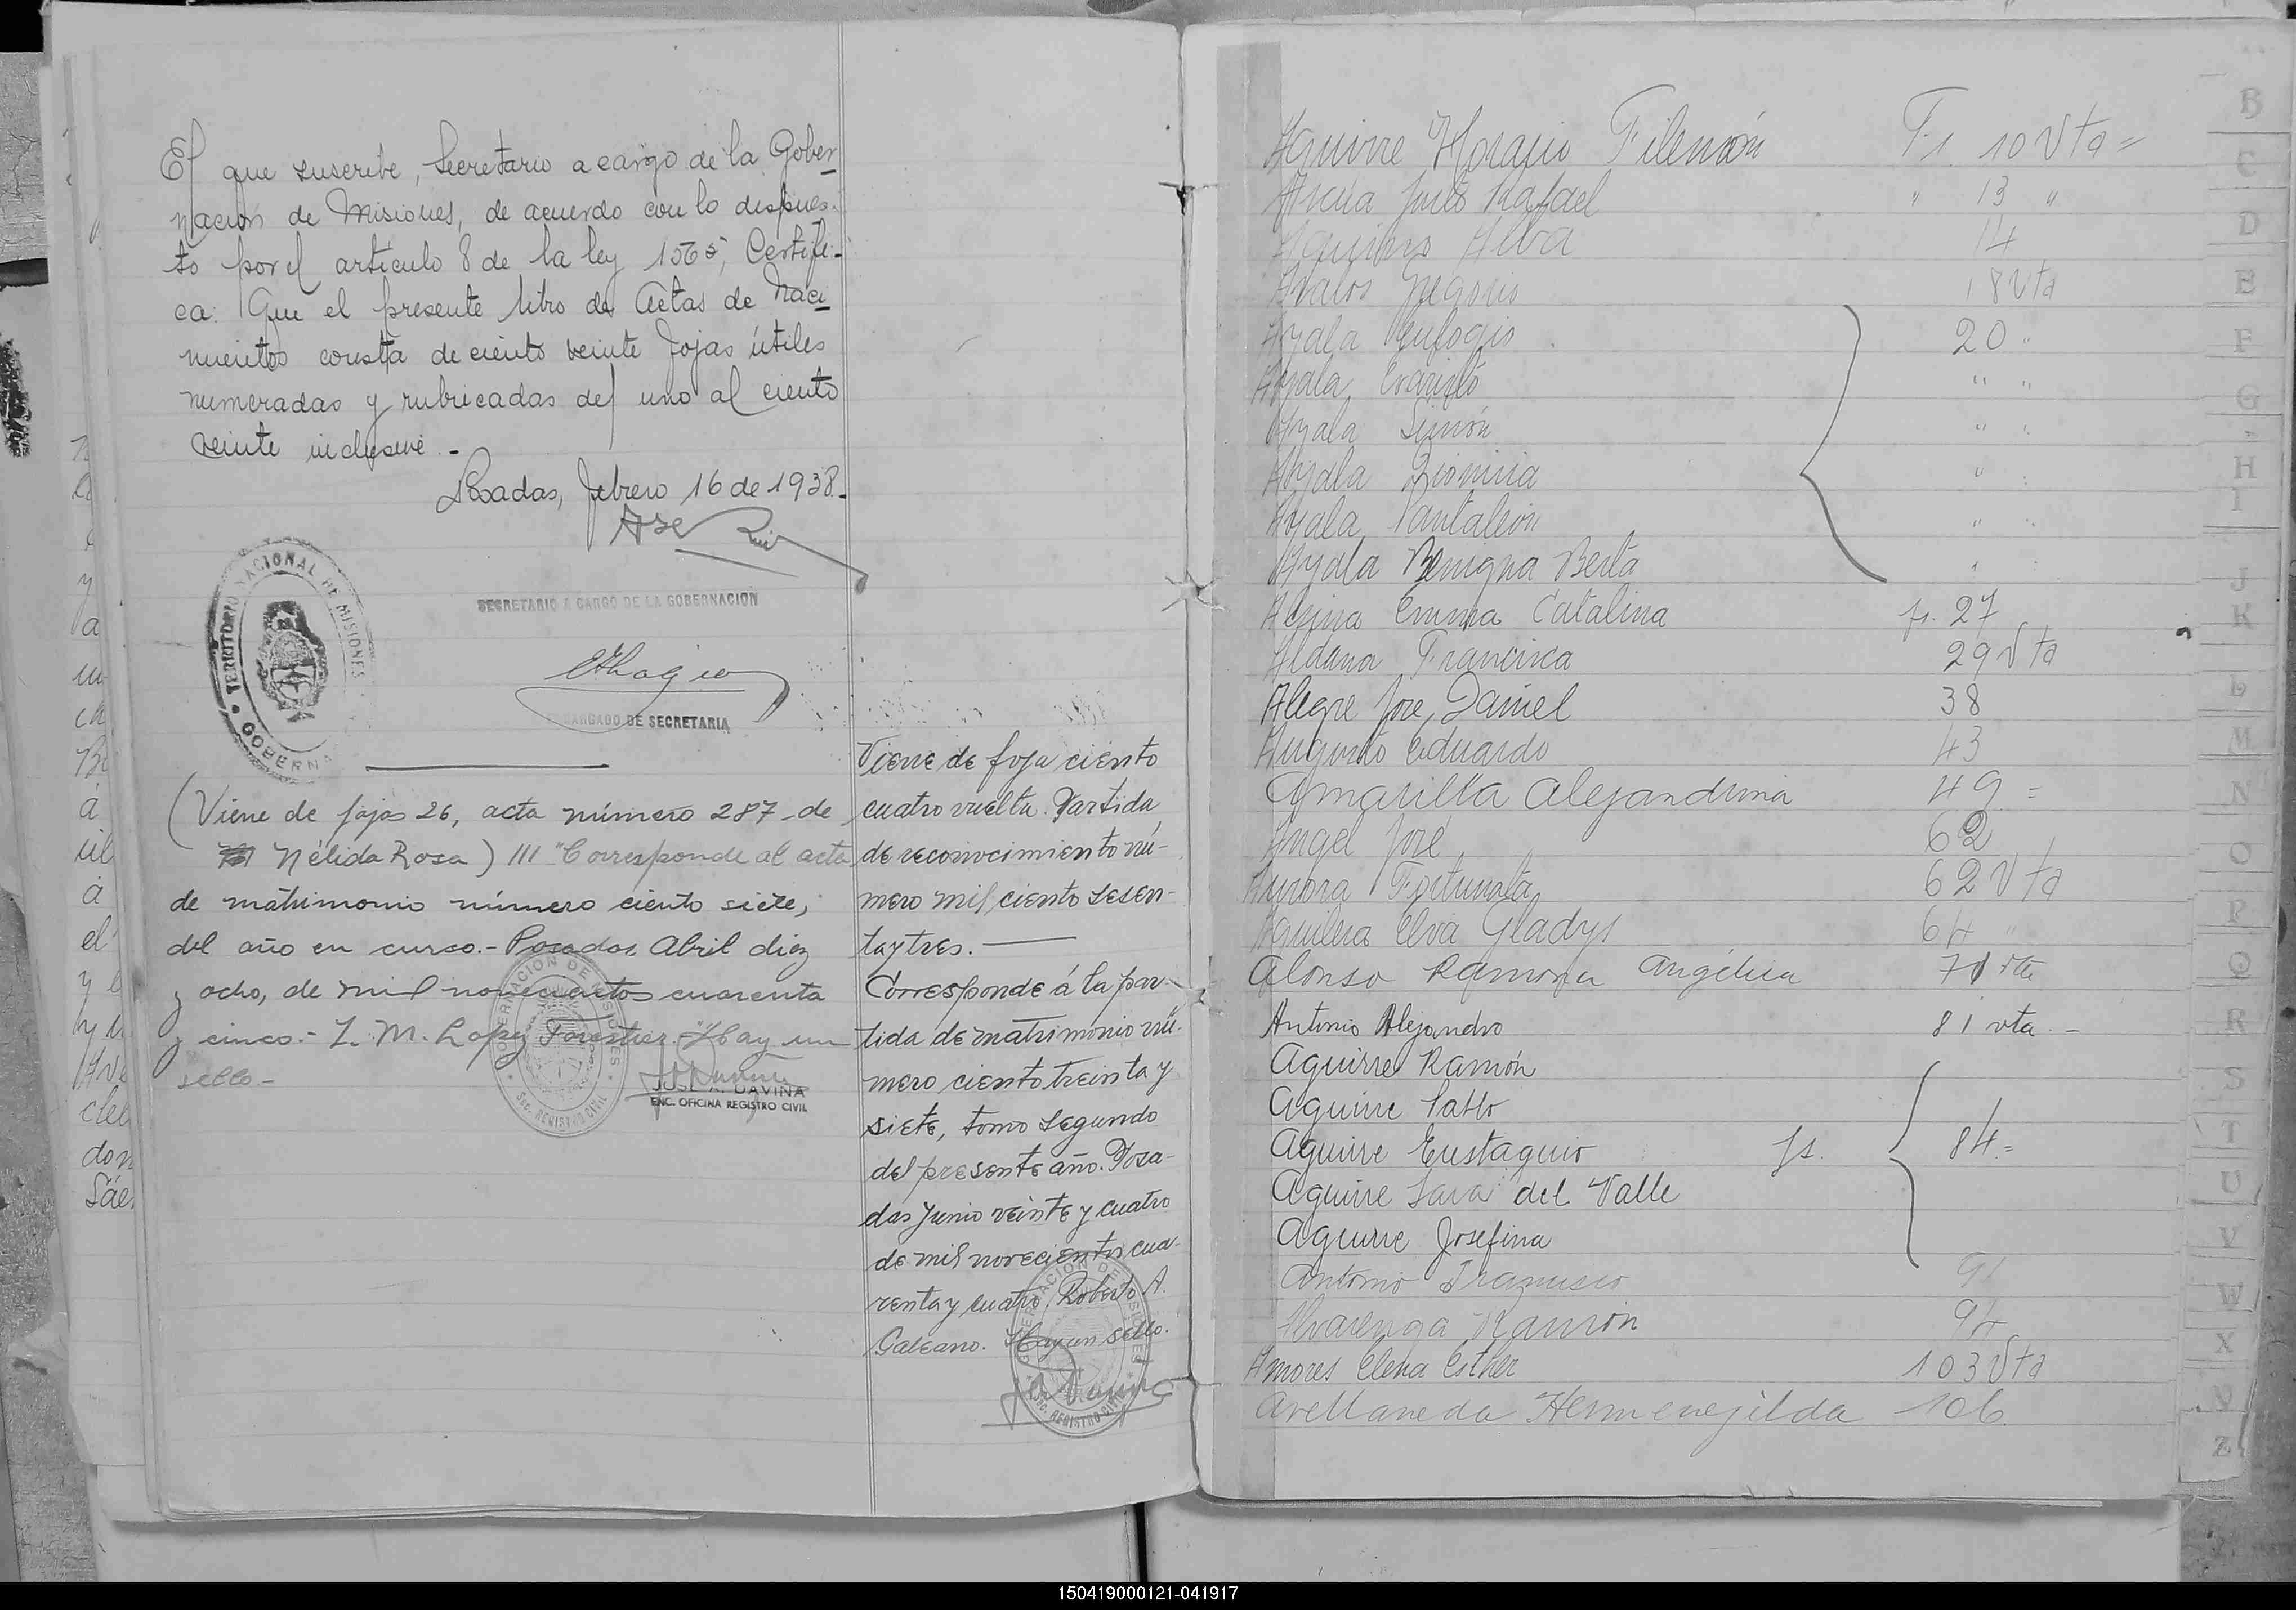 El que suscribe, Secretario a cargo de la Gober
nación de Misiones, de acuerdo con lo dispues-
to por el artículo 8 de la ley 1565, Certifi-
ca: Que el presente libro de Actas de Naci
mientos consta de ciento veinte fojas útiles
numeradas y rubricadas del uno al ciento
veinte inclusive.-
Posadas, febrero 16 de 1938.-
TERRITORIO NACIONAL DE MISIONES
GOBERN
SECRETARIO A CARGO DE LA GOBERNACION
ENCARGADO DE SECRETARIA
(Viene de fojas 26, acta número 287-de
Nélida Rosa) /// "Corresponde al acta
de matrimonio número ciento siete,
del año en curso.- Posadas, Abril diez
y ocho, de mil novecientos cuarenta
y cinco.- L. M. Lopez Forestier. Hay un
sello.-
GOBERNACION DE MISIONES
SEC. REGISTRO CIVIL
DAVIÑA
ENC. OFICINA REGISTRO CIVIL
Viene de foja ciento
cuatro vuelta. Partida
de reconocimiento nú-
mero mil ciento sesen-
ta y tres.
Corresponde á la par-
tida de matrimonio nú-
mero ciento treinta y
siete, tomo segundo
del presente año. Posa-
das Junio veinte y cuatro
de mil novecientos cua-
renta y cuatro. Roberto A.
Galeano. Hay un sello.
GOBERNACION DE MISIONES
SEC. REGISTRO CIVIL
Aguirre Horacio Filemón Fs. 10 Vta=
Julio Rafael " 13 "
Aquino Alba 14
Avalos Gregorio 18 Vta
Ayala Eulogio 20 "
Ayala Evaristo " "
Ayala Simón " "
Ayala Dionisia " "
Ayala Pantaleón " "
Ayala Benigna Berta "
Alsina Emma Catalina fs. 27
Aldana Francisca 29 Vta
Alegre José Daniel 38
Augusto Eduardo 43
Amarilla Alejandrina 49=
Angel José 62
Aurora Fortunata 62 Vta
Aguilera Elva Gladys 64 "
Alonso Ramona Angélica 71 vta
Antonio Alejandro 81 vta.-
Aguirre Ramón
Aguirre Pablo
Aguirre Eustaquio fs. 84=
Aguirre Sara del Valle
Aguirre Josefina
Antonio Francisco 91
Alvarenga Ramón 94
Amores Elena Esther 103 Vta
Avellaneda Hermenegilda 106
B
C
D
E
F
G
H
I
J
K
L
M
N
O
P
Q
R
S
T
U
V
W
X
Z
150419000121-041917